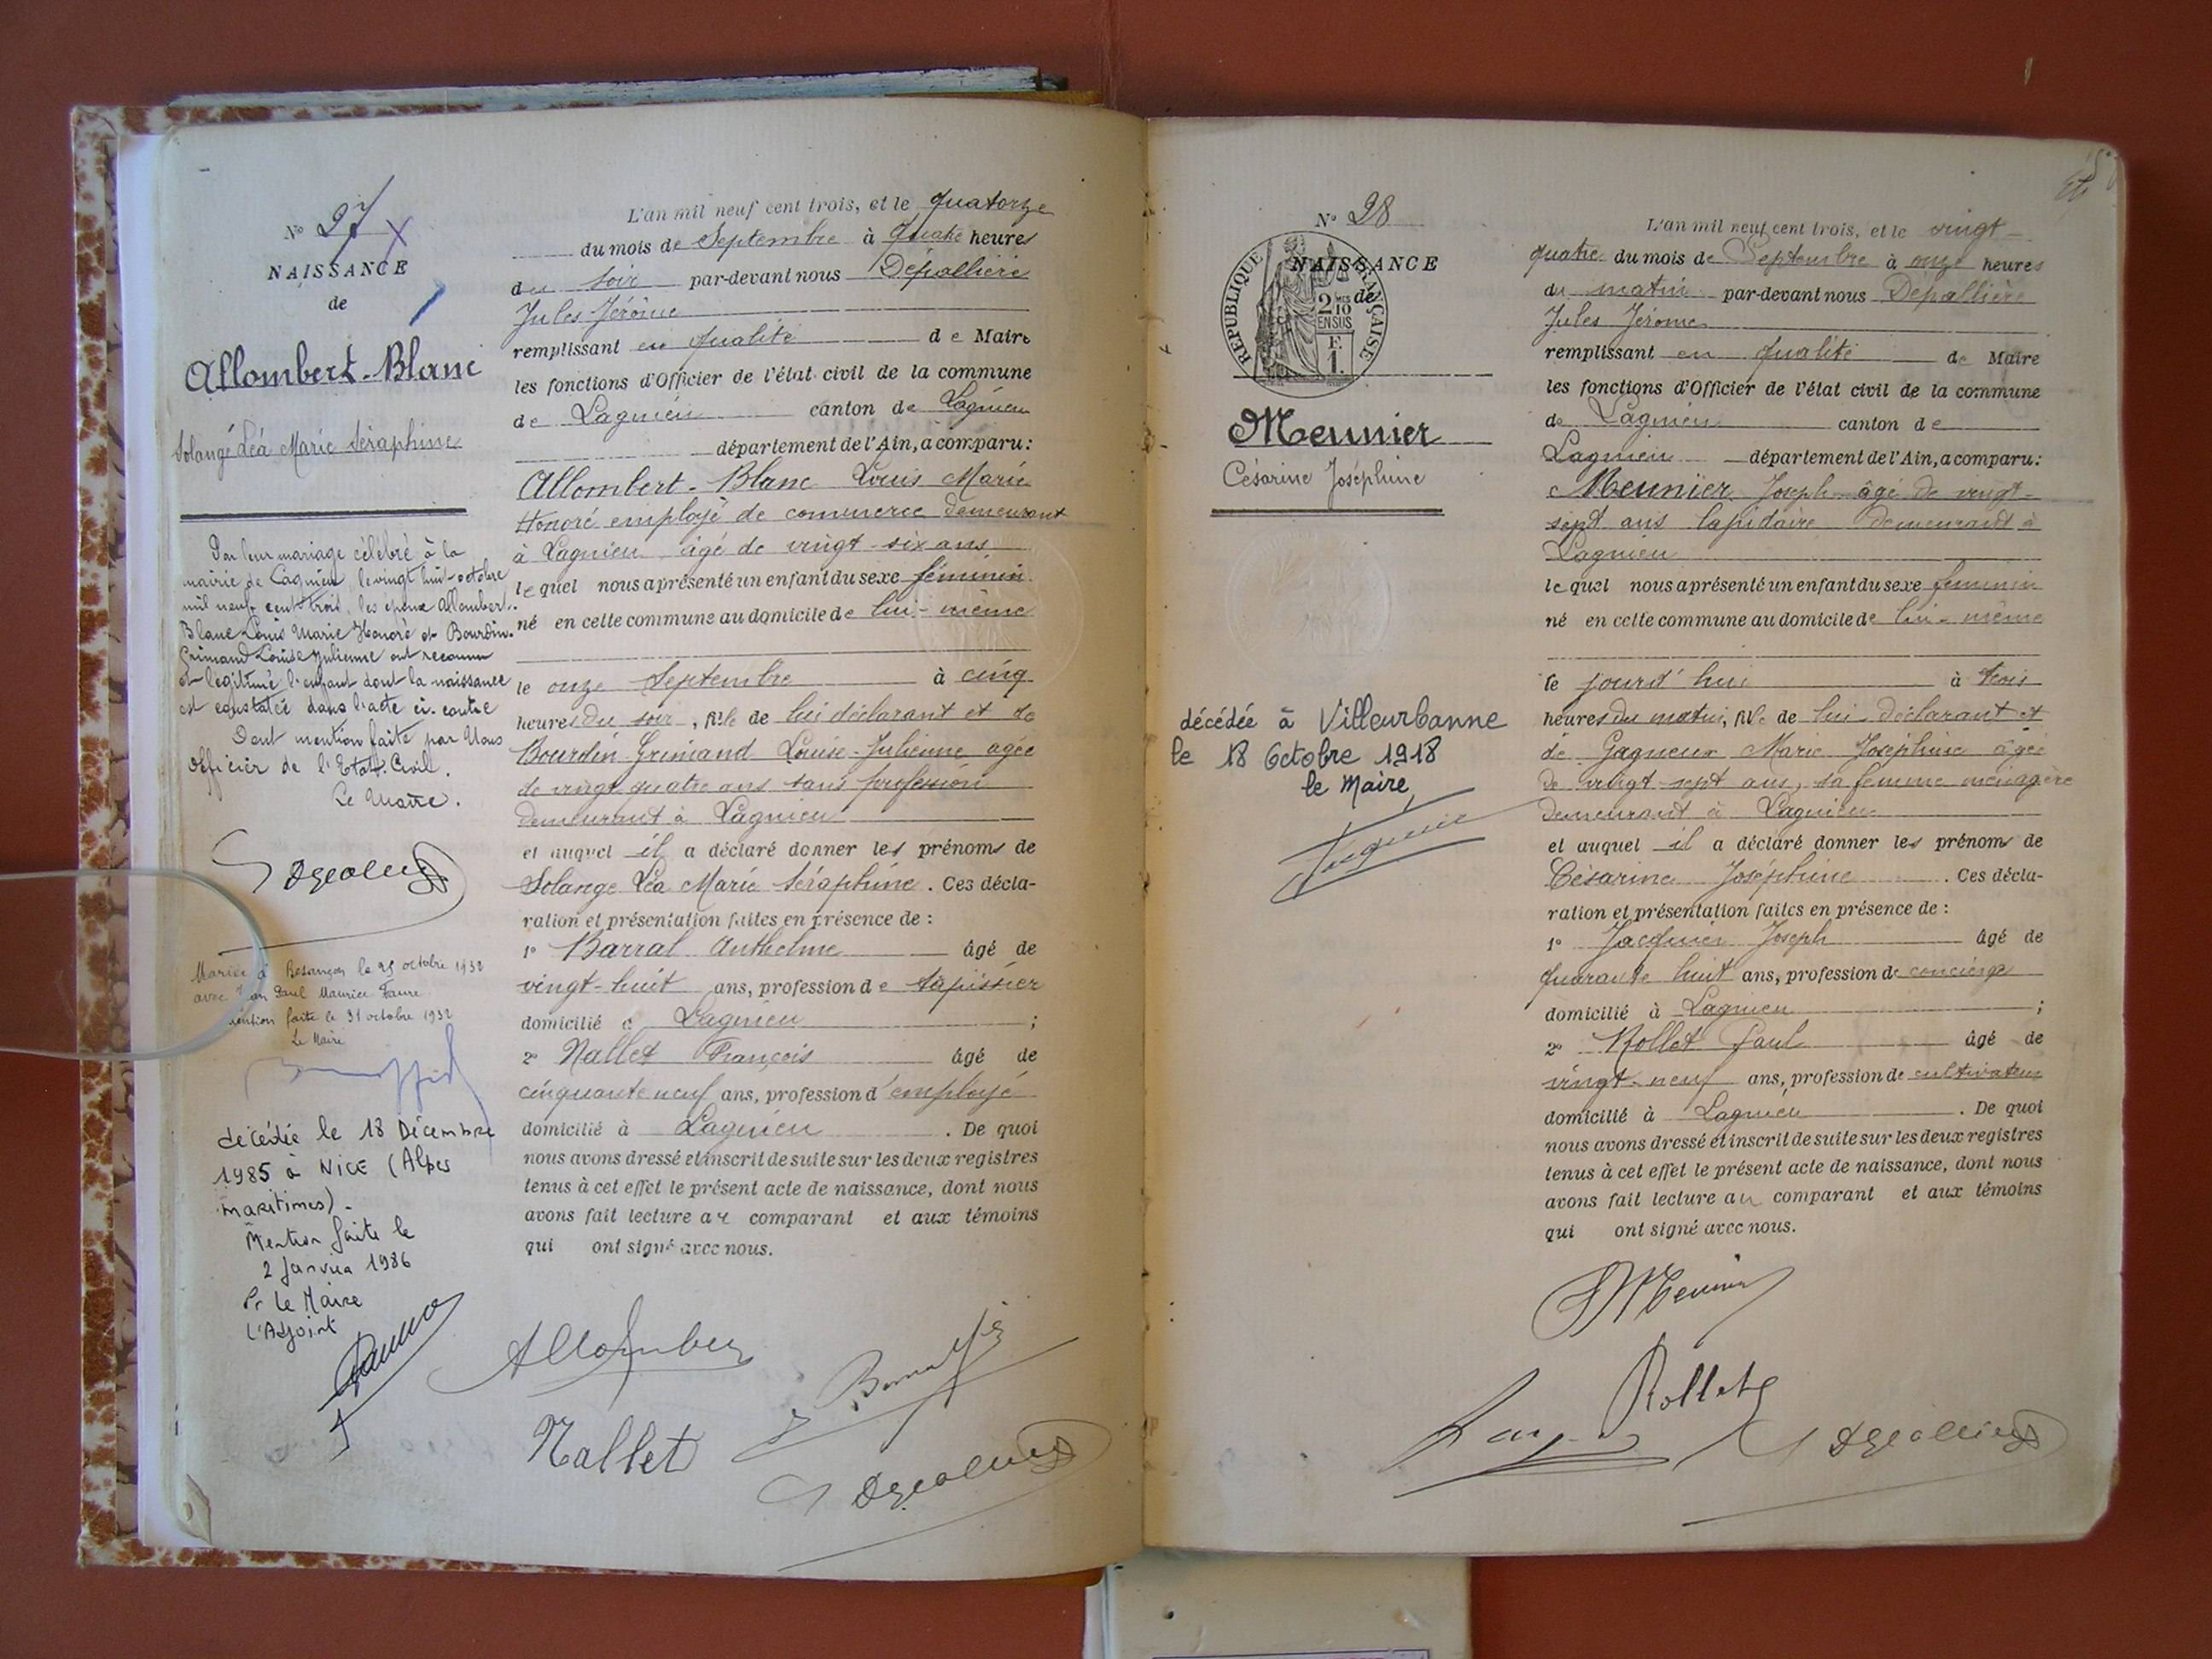 N° 27
NAISSANCE
de
Allombert-Blanc
Solange Léa Marie Séraphine
Par leur mariage célébré à la
mairie de Lagnieu le vingt huit octobre
mil neuf cent trois, les époux Allombert-
Blanc Louis Marie Honoré et Bourdin-
Grimaud Louise Julienne ont reconnu
et légitimé l'enfant dont la naissance
est constatée dans l'acte ci-contre
Dont mention faite par Nous
Officier de l'Etat-Civil.
Le Maire.
Mariée à Besançon le 25 octobre 1932
avec Jean Paul Maurice Faure
mention faite le 31 octobre 1932
Le Maire
décédée le 18 Décembre
1985 à NICE (Alpes
maritimes).
Mention faite le
2 Janvier 1986
Pr le Maire
L'Adjoint
L'an mil neuf cent trois, et le quatorze
du mois de Septembre à quatre heures
du soir par-devant nous Dépallière
Jules Jérôme
remplissant en qualité de Maire
les fonctions d'Officier de l'état civil de la commune
de Lagnieu canton de Lagnieu
département de l'Ain, a comparu :
Allombert-Blanc Louis Marie
Honoré employé de commerce demeurant
à Lagnieu âgé de vingt-six ans
lequel nous a présenté un enfant du sexe féminin
né en cette commune au domicile de lui-même
le onze Septembre à cinq
heures du soir, fille de lui déclarant et de
Bourdin-Grimaud Louise-Julienne agée
de vingt quatre ans sans profession
demeurant à Lagnieu
et auquel il a déclaré donner les prénoms de
Solange Léa Marie Séraphine. Ces décla-
ration et présentation faites en présence de :
1° Barral Anthelme âgé de
vingt-huit ans, profession de tapissier
domicilié à Lagnieu ;
2° Nallet François âgé de
cinquante neuf ans, profession d'employé
domicilié à Lagnieu. De quoi
nous avons dressé et inscrit de suite sur les deux registres
tenus à cet effet le présent acte de naissance, dont nous
avons fait lecture au comparant et aux témoins
qui ont signé avec nous.
Allomber
Nallet
N° 28
NAISSANCE
de
RÉPUBLIQUE FRANÇAISE
2/10 MES
EN SUS
F.
1.
Meunier
Césarine Joséphine
décédée à Villeurbanne
le 18 Octobre 1918
le Maire
L'an mil neuf cent trois, et le vingt-
quatre du mois de Septembre à onze heures
du matin par-devant nous Dépallière
Jules Jérome
remplissant en qualité de Maire
les fonctions d'Officier de l'état civil de la commune
de Lagnieu canton de
Lagnieu département de l'Ain, a comparu :
Meunier Joseph âgé de vingt-
sept ans lapidaire demeurant à
Lagnieu
lequel nous a présenté un enfant du sexe féminin
né en cette commune au domicile de lui-même
le jourd'hui à trois
heures du matin, fille de lui déclarant et
de Gagneux Marie Joséphine âgée
de vingt-sept ans, sa femme ménagère
demeurant à Lagnieu
et auquel il a déclaré donner les prénoms de
Césarine Joséphine. Ces décla-
ration et présentation faites en présence de :
1° Jacquier Joseph âgé de
quarante huit ans, profession de concierge
domicilié à Lagnieu ;
2° Rollet Paul âgé de
vingt-neuf ans, profession de cultivateur
domicilié à Lagnieu. De quoi
nous avons dressé et inscrit de suite sur les deux registres
tenus à cet effet le présent acte de naissance, dont nous
avons fait lecture au comparant et aux témoins
qui ont signé avec nous.
Meunier
Rollet